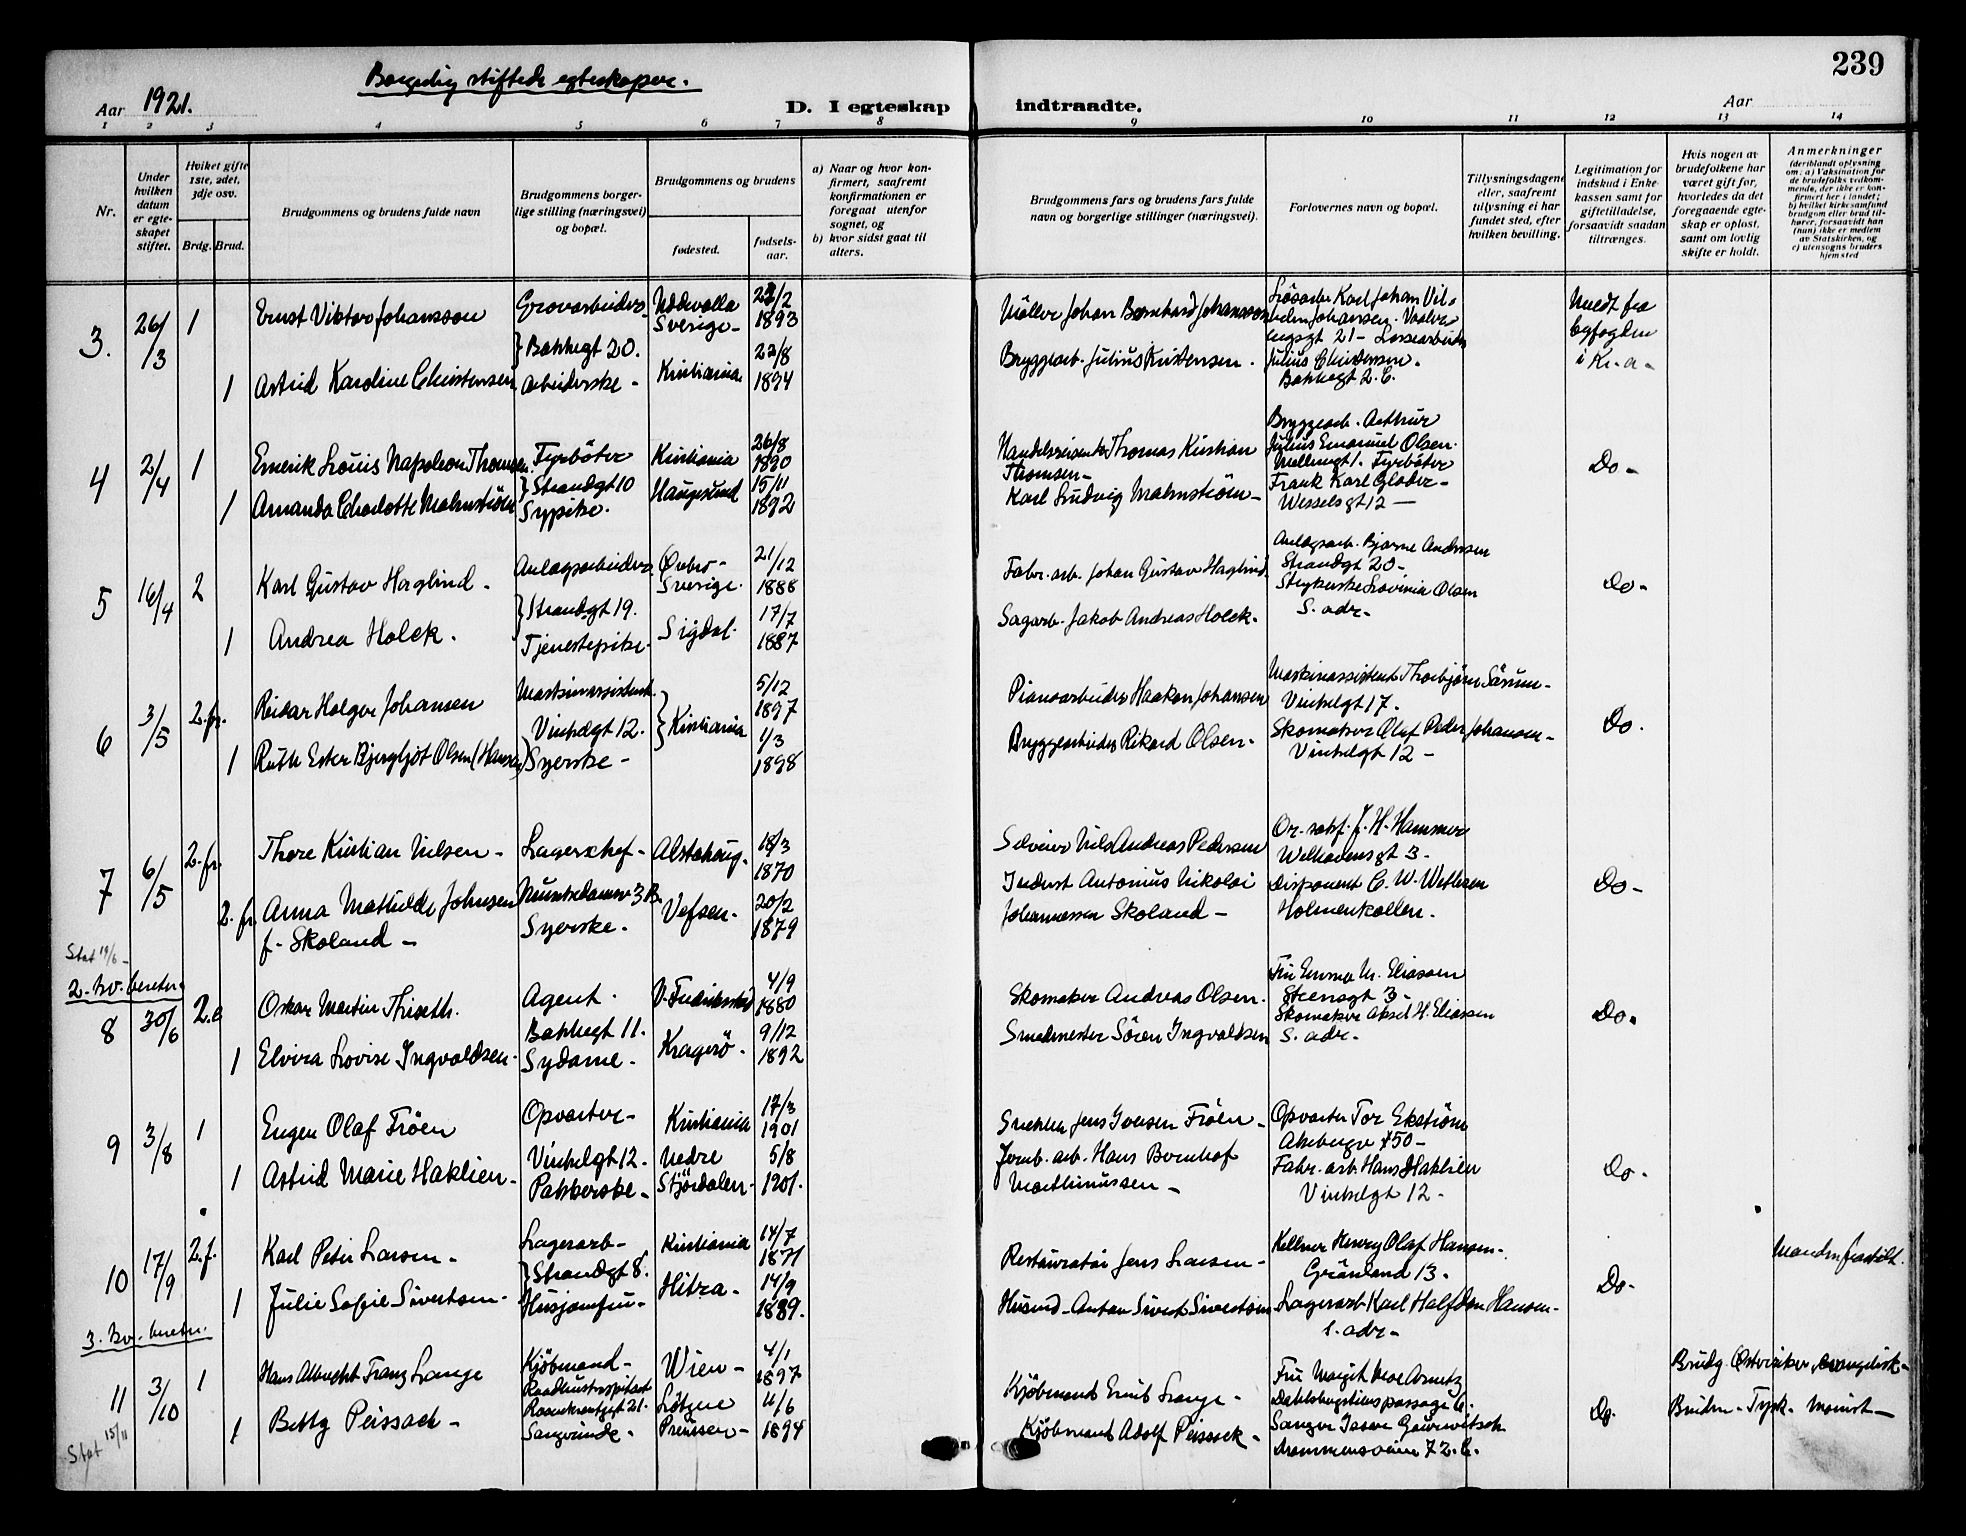 239
Borgerlig stiftede egteskaper.
Aar 1921.
D. I egteskap indtraadte.
Aar
1 2 3 4 5 6 7 8 9 10 11 12 13 14
Nr.
Under hvilken datum er egteskapet stiftet.
Hviket gifte 1ste, 2det, 3dje osv.
Brdg. Brud.
Brudgommens og brudens fulde navn
Brudgommens borgerlige stilling (næringsvei) og bopæl.
Brudgommens og brudens
fødested.
fødselsaar.
a) Naar og hvor konfirmert, saafremt konfirmationen er foregaat utenfor sognet, og
b) hvor sidst gaat til alters.
Brudgommens fars og brudens fars fulde navn og borgerlige stillinger (næringsvei).
Forlovernes navn og bopæl.
Tillysningsdagene eller, saafremt tillysning ei har fundet sted, efter hvilken bevilling.
Legitimation for indskud i Enkekassen samt for giftetilladelse, forsaavidt saadan tiltrænges.
Hvis nogen av brudefolkene har været gift før, hvorledes da det foregaaende egteskap er opløst, samt om lovlig skifte er holdt.
Anmerkninger
(deriblandt oplysning om: a) Vaksination for de brudefolks vedkommende, der ikke er konfirmert her i landet; b) hvilket kirkesamfund brudgom eller brud tilhører, forsaavidt han (hun) ikke er medlem av Statskirken, og c) utensogns bruders hjemsted
3. 26/3 1 Ernst Viktor Johansson Grovarbeider Uddevalla Sverige 22/2 1893
Møller Johan Bernhard Johansson
Løsarb. Karl Johan Vilhelm Johansen. Vaalerengsgt 21 - Lossearbeider
Meldt fra byfogden i Kr.a -
} Bakkegt 20.
1 Astrid Karoline Christensen arbeiderske - Kristiania 22/8 1894
Bryggearb. Julius Kristensen.
Julius Christensen. Bakkegt 2. C.
4 2/4 1 Emerik Louis Napoleon Thomsen. Fyrbøter Kristiania 26/8 1890
Handelsreisende Thomas Kristian Thomsen -
Bryggearb. Arthur Julius Emanuel Olsen. Møllergt 1. Fyrbøter
Do -
} Strandgt 10
1 Amanda Charlotte Malmstrøm Sypike. Haugesund 15/11 1892
Karl Ludvig Malmstrøm -
Frank Karl Glader - Wesselsgt 12 -
5 16/4 2 Karl Gustav Haglind - Anlægsarbeider Ørebro - Sverige. 21/12 1888
Fabr. arb. Johan Gustav Haglind.
Anlægsarb. Bjarne Andersen Strandgt 20 -
Do -
} Strandgt 19.
1 Andrea Holck. Tjenestepike - Sigdal. 17/7 1887
Sagarb. Jakob Andreas Holck.
Strykerske Lovinia Olsen S. adr -
6 3/5 2. fr. Reidar Holger Johansen Maskinassistent. } Kristiania 5/12 1897
Pianoarbeider Haakon Johansen
Maskinassistent Thorbjørn Sørum - Vinkelgt 17.
Do.
Vinkelgt 12.
1 Ruth Ester Bjergljot Olsen (Hansen) Syerske - 1/3 1898
Bryggearbeider Rikard Olsen -
Skomaker Olaf Peder Johansen - Vinkelgt 12 -
7 6/5 2. fr. Thore Kristian Nilsen - Lagerschef - Alstahoug. 18/3 1870
Selveier Nils Andreas Pedersen
Or. sakf. J. H. Hammer Welhavensgt 3 -
Do -
Munkedamsv 3 B.
2. fr. Anna Mathilde Johnsen f. Skoland - Syerske. Vefsen. 20/2 1879
Inderst Antonius Nikolai Johannessen Skoland -
Disponent C. W. Wethren Holmenkollen.
Stat 19/6 -
2. kv. beretn.
8 30/6 2. e Oskar Martin Thiseth. Agent. V. Fredrikstad 4/9 1880
Skomaker Andreas Olsen.
Fru Emma M. Eliassen Steensgt 3 -
Do.
Bakkegt 11.
1 Elvira Lovise Ingvaldsen. Sydame - Kragerø - 9/12 1892
Smedmester Søren Ingvaldsen
Skomaker Aksel H. Eliassen S. adr -
9 3/8 1 Eugen Olaf Frøen Opvarter - Kristiania 17/3 1901
Snekker Jens Iversen Frøen -
Opvarter Tor Ekstrøm Akebergv 50 -
Do -
Vinkelgt 12.
1 Astrid Marie Haklien - Pakkerske - Nedre Stjørdalen - 5/8 1901.
Jernb. arb. Hans Bernhof Marthinussen -
Fabr. arb. Hans Haklien Vinkelgt 12 -
10 17/9 2. f. Karl Peter Larsen - Lagerarb - Kristiania 14/7 1871
Restauratør Jens Larsen -
Kellner Henry Olaf Hansen - Grønland 13 -
Do -
Manden fraskilt.
} Strandgt 8.
1 Julie Sofie Sivertsen - Husjomfru - Hitra - 14/9 1889.
Husmd - Anton Sivert Sivertsen
Lagerarb Karl Halfdan Hansen - S. adr -
3. kv. beretn.
11 3/10 1 Hans Albrecht Franz Lange Kjøbmand - Wien - 4/1 1897
Kjøbmand Emil Lange -
Fru Margit Moe Arnetz Dahlsbergstiens passage 6.
Do.
Brudg. Østeriker, evangelisk -
Raadhushospitset Rosenkrantzgt 21.
1 Betty Peissach - Sangerinde - Løtzen Preussen - 11/6 1894
Kjøbmand Adolf Peissach -
Sanger Isser Gourwitsch Drammensveien 72. C.
Bruden - Tysk. mosaist -
Stat 15/11